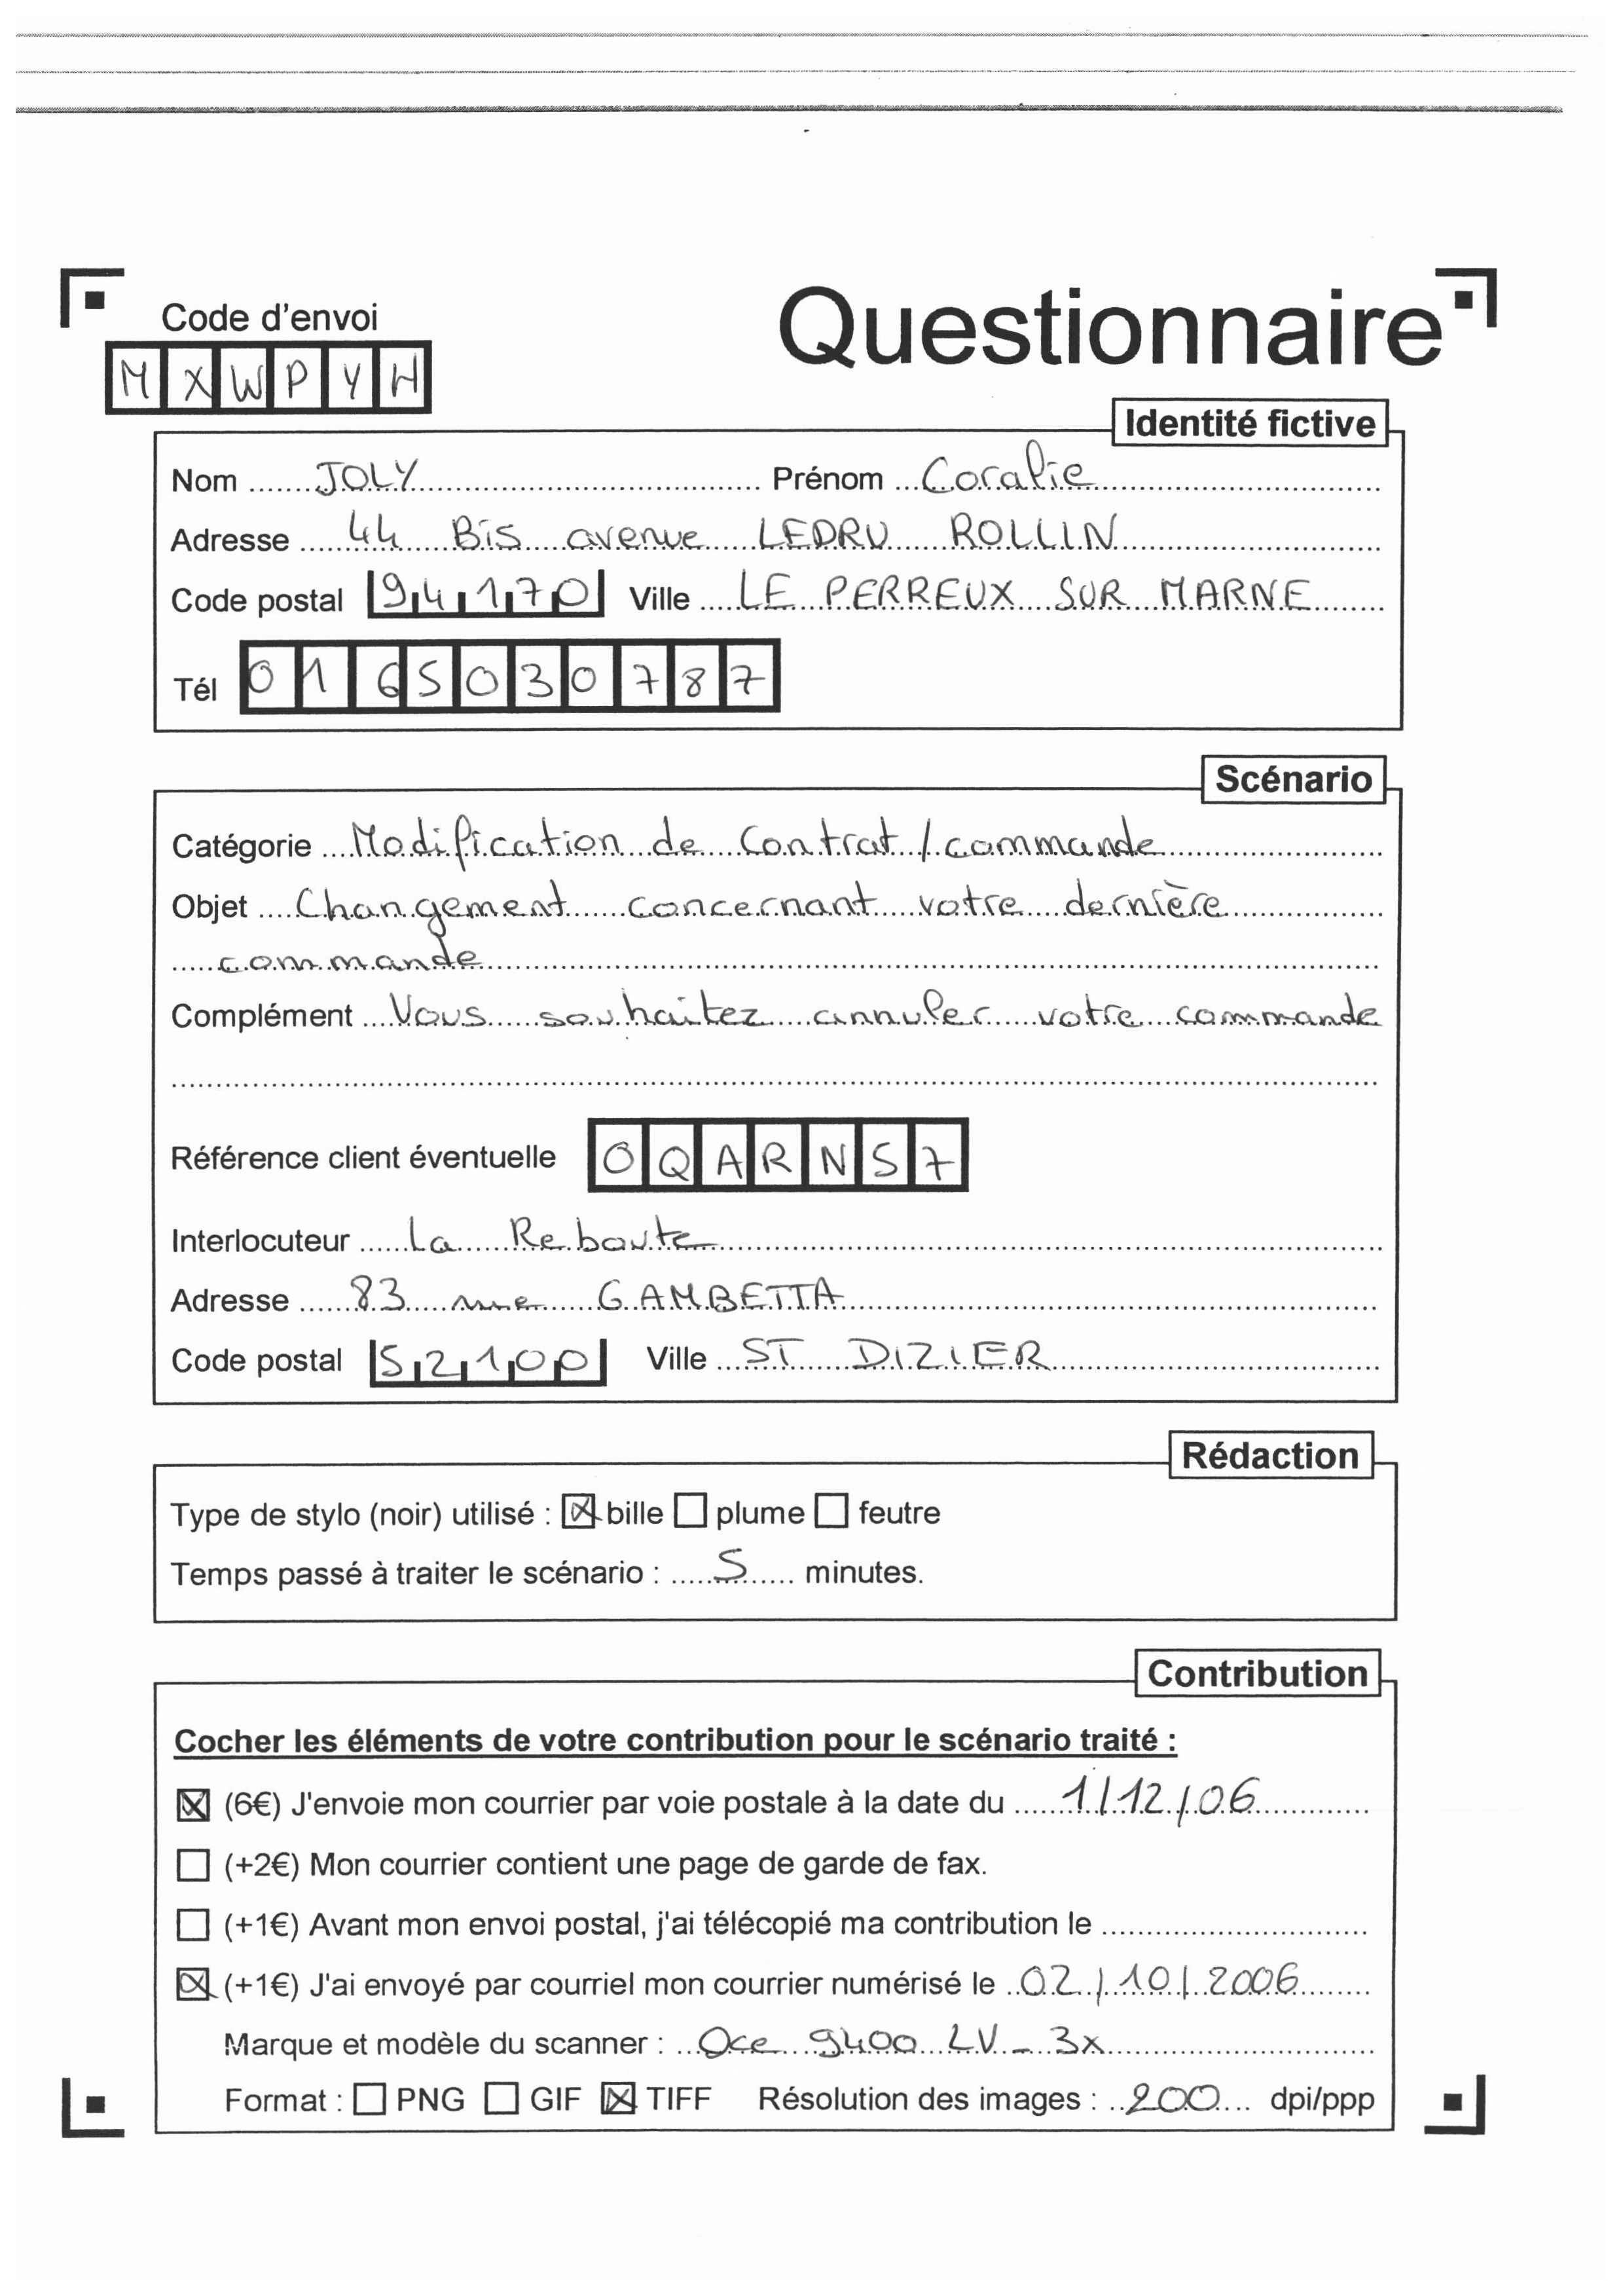 Code d'envoi
Questionnaire
MXWPYH
Identité fictive
Nom JOLY Prénom Coralie
Adresse 44 Bis avenue LEDRU ROLLIN
Code postal 94170 Ville LE PERREUX SUR MARNE
Tél 0165030787
Scénario
Catégorie Modification de contrat / commande
Objet Changement concernant votre dernière
commande
Complément Vous souhaitez annuler votre commande
Référence client éventuelle OQARNS7
Interlocuteur La Reboute
Adresse 83 rue GAMBETTA
Code postal 52100 Ville ST DIZIER
Rédaction
Type de stylo (noir) utilisé : ☒ bille ☐ plume ☐ feutre
Temps passé à traiter le scénario : 5 minutes.
Contribution
Cocher les éléments de votre contribution pour le scénario traité :
☒ (6€) J'envoie mon courrier par voie postale à la date du 1/12/06
☐ (+2€) Mon courrier contient une page de garde de fax.
☐ (+1€) Avant mon envoi postal, j'ai télécopié ma contribution le
☒ (+1€) J'ai envoyé par courriel mon courrier numérisé le 02/10/2006
Marque et modèle du scanner : Oce 9400 LV-3x
Format : ☐ PNG ☐ GIF ☒ TIFF Résolution des images : 200 dpi/ppp